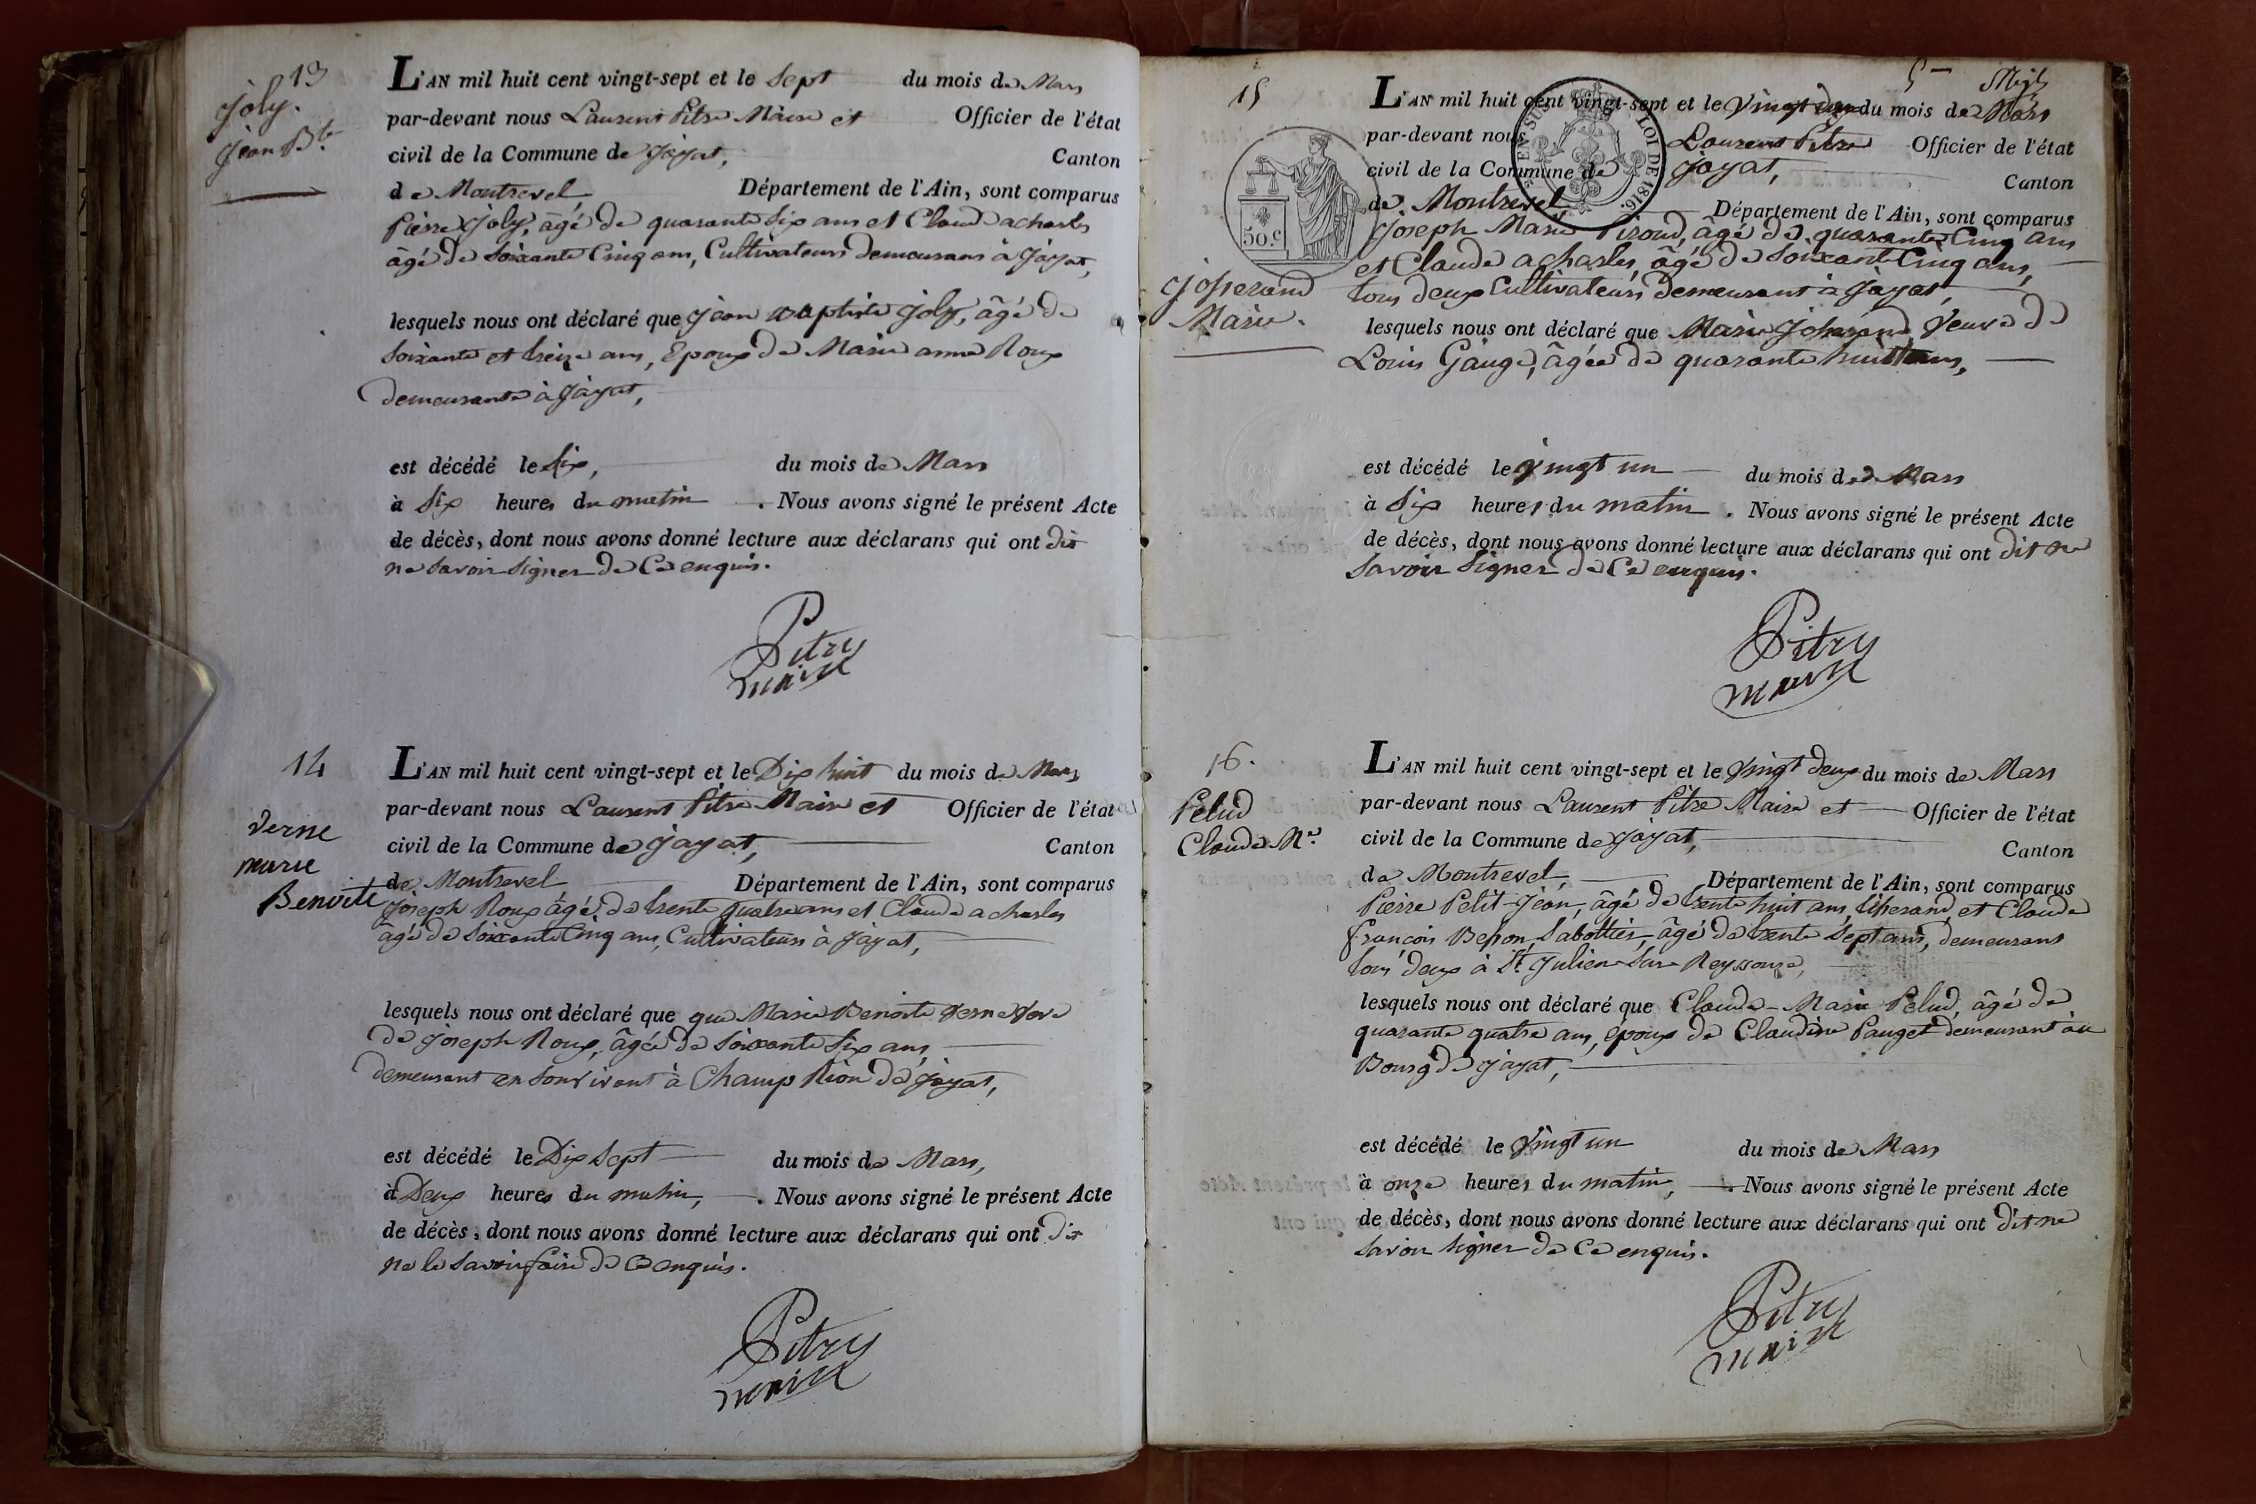 13
Joly.
Jean Bte
L'AN mil huit cent vingt-sept et le Sept du mois de Mars
par-devant nous Laurent Pitre Maire et Officier de l'état
civil de la Commune de Jayat, Canton
de Montrevel Département de l'Ain, sont comparus
Pierre Joly, âgé de quarante Six ans et Claude acharles
âgé de Soixante Cinq ans, Cultivateurs demeurans à Jayat,
lesquels nous ont déclaré que Jean Baptiste Joly, âgé de
Soixante et treize ans, Epoux de Marie anne Roux
demeurante à Jayat,
est décédé le Six, du mois de Mars
à Six heures du matin . Nous avons signé le présent Acte
de décès, dont nous avons donné lecture aux déclarans qui ont dit
ne Savoir Signer de Ce enquis.
Pitre
maire
14
Verne
marie
Benoite
L'AN mil huit cent vingt-sept et le Dix huit du mois de Mars
par-devant nous Laurent Pitre Maire et Officier de l'état
civil de la Commune de Jayat, Canton
de Montrevel Département de l'Ain, sont comparus
Joseph Roux âgé de trente quatre ans et Claude acharles
âgé de Soixante Cinq ans, Cultivateurs à Jayat,
lesquels nous ont déclaré que que Marie Benoite Verne Veve
de Joseph Roux, âgée de Soixante Six ans,
demeurant en Son vivant à Champ Rion de Jayat,
est décédé le Dix Sept du mois de Mars,
à Deux heures du matin, . Nous avons signé le présent Acte
de décès, dont nous avons donné lecture aux déclarans qui ont dit
ne le Savoir faire de Ce enquis.
Pitre
maire
5
15
EN SUS LOI DE 1816.
50.c
Josserand
Marie.
L'AN mil huit cent vingt-sept et le Vingt deux du mois de Mars
par-devant nous Laurent Pitre Officier de l'état
civil de la Commune de Jayat, Canton
de Montrevel Département de l'Ain, sont comparus
Joseph Marie Piroud, âgé de quarante Cinq ans
et Claude acharles, âgé de Soixante Cinq ans,
tous deux Cultivateurs Demeurant à Jayat,
lesquels nous ont déclaré que Marie Josserand Veuve de
Louis Gauge, âgée de quarante huit ans,
est décédé le Vingt un du mois de de Mars
à Six heures du matin . Nous avons signé le présent Acte
de décès, dont nous avons donné lecture aux déclarans qui ont dit ne
Savoir Signer de Ce enquis.
Pitre
maire
16.
Pelud
Claude Me
L'AN mil huit cent vingt-sept et le Vingt deux du mois de Mars
par-devant nous Laurent Pitre Maire et Officier de l'état
civil de la Commune de Jayat, Canton
de Montrevel, Département de l'Ain, sont comparus
Pierre Petit-Jean, âgé de trente huit ans, tisserand, et Claude
françois Besson, Sabottier, âgé de trente Sept ans, demeurans
tous deux à St Julien Sur Reyssouze,
lesquels nous ont déclaré que Claude-Marie Pelud, âgé de
quarante quatre ans, époux de Claudine Pauget demeurant au
Bourg de Jayat,
est décédé le Vingt un du mois de Mars
à onze heures du matin, . Nous avons signé le présent Acte
de décès, dont nous avons donné lecture aux déclarans qui ont dit ne
Savoir Signer de Ce enquis.
Pitre
maire